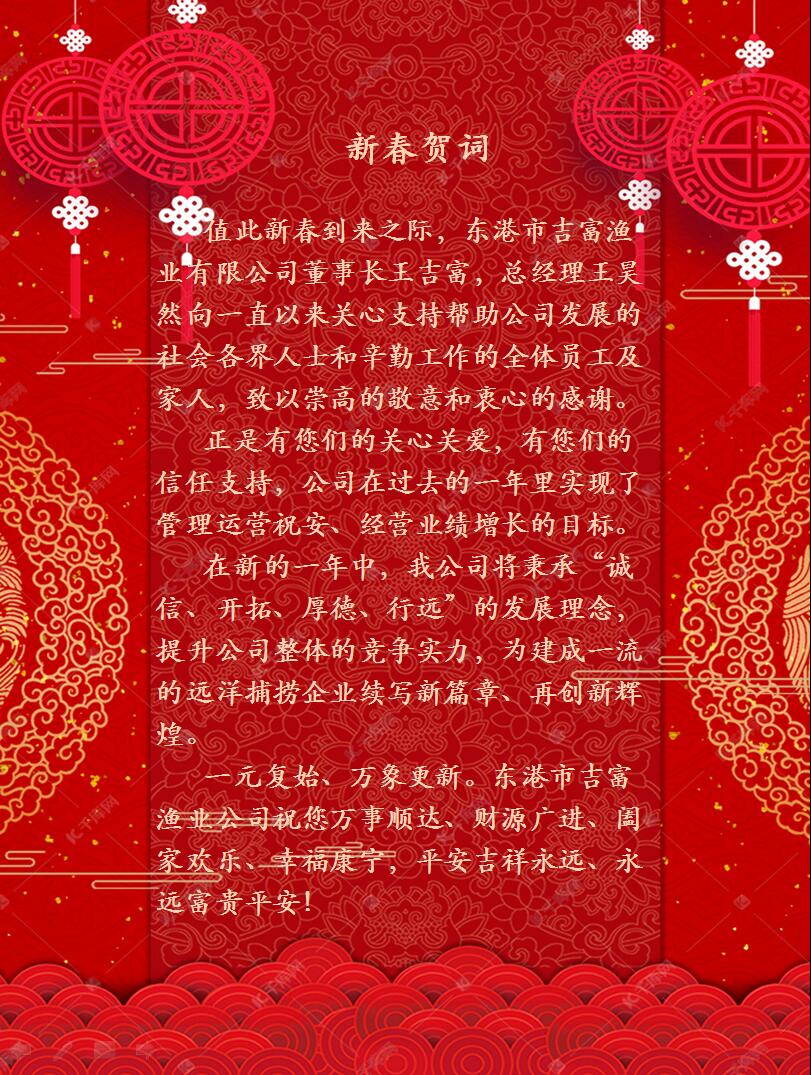 新春贺词
值此新春到来之际，东港市吉富渔
业有限公司董事长王吉富，总经理王昊
然向一直以来关心支持帮助公司发展的
社会各界人士和辛勤工作的全体员工及
家人，致以崇高的敬意和衷心的感谢。
正是有您们的关心关爱，有您们的
信任支持，公司在过去的一年里实现了
管理运营祝安、经营业绩增长的目标。
在新的一年中，我公司将秉承“诚
信、开拓、厚德、行远”的发展理念，
提升公司整体的竞争实力，为建成一流
的远洋捕捞企业续写新篇章、再创新辉
煌。
一元复始、万象更新。东港市吉富
渔业公司祝您万事顺达、财源广进、阖
家欢乐、幸福康宁，平安吉祥永远、永
远富贵平安！